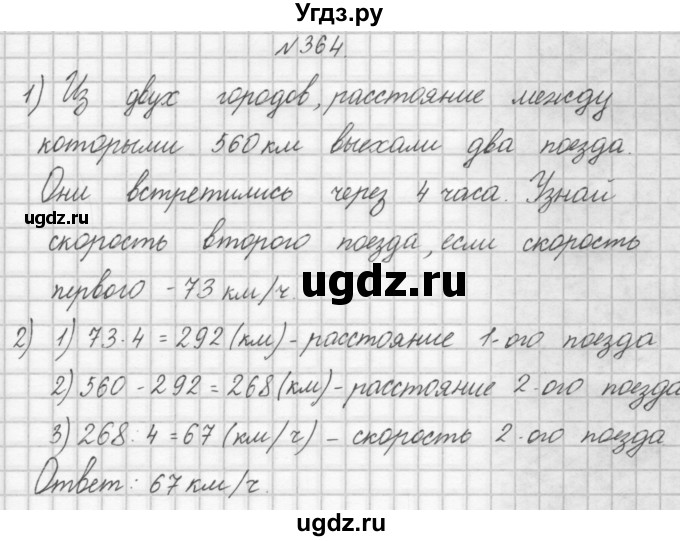 Угдз.ру
№364.
1) Из двух городов, расстояние между
которыми 560 км выехали два поезда.
Они встретились через 4 часа. Узнай
ugdz.ru
скорость второго поезда, если скорость
ugdz.ru
первого - 73 км/ч.
2) 1) 73·4 = 292 (км) - расстояние 1-ого поезда
2) 560 - 292 = 268 (км) - расстояние 2-ого поезда
3) 268 : 4 = 67 (км/ч) - скорость 2-ого поезда
Ответ: 67 км/ч.
ugdz.ru
ugdz.ru